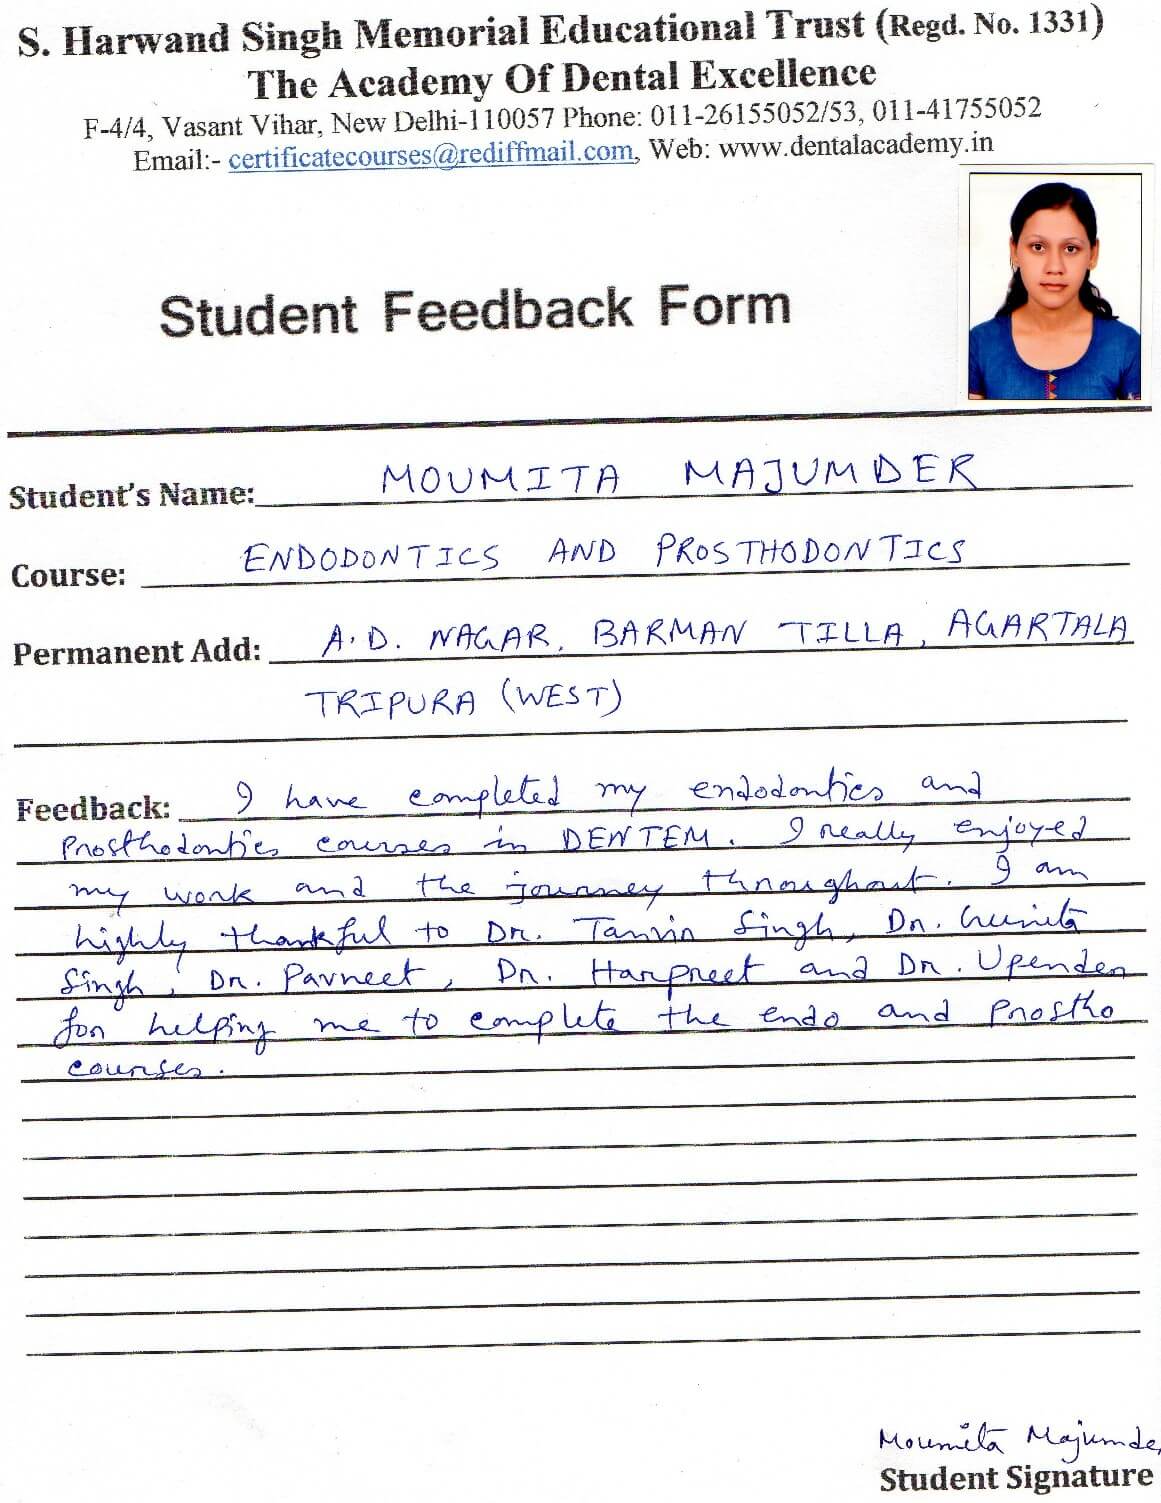 S. Harwand Singh Memorial Educational Trust (Regd. No. 1331)
The Academy Of Dental Excellence
F-4/4, Vasant Vihar, New Delhi-110057 Phone: 011-26155052/53, 011-41755052
Email:- certificatecourses@rediffmail.com, Web: www.dentalacademy.in
Student Feedback Form
Student's Name: MOUMITA MAJUMDER
Course: ENDODONTICS AND PROSTHODONTICS
Permanent Add: A.D. NAGAR, BARMAN TILLA, AGARTALA
TRIPURA (WEST)
Feedback: I have completed my endodontics and
Prosthodontics courses in DENTEM. I really enjoyed
my work and the journey throughout. I am
highly thankful to Dr. Tanvir Singh, Dr. Gunita
Singh, Dr. Pavneet, Dr. Harpreet and Dr. Upender
for helping me to complete the endo and Prostho
courses.
Moumita Majumde
Student Signature